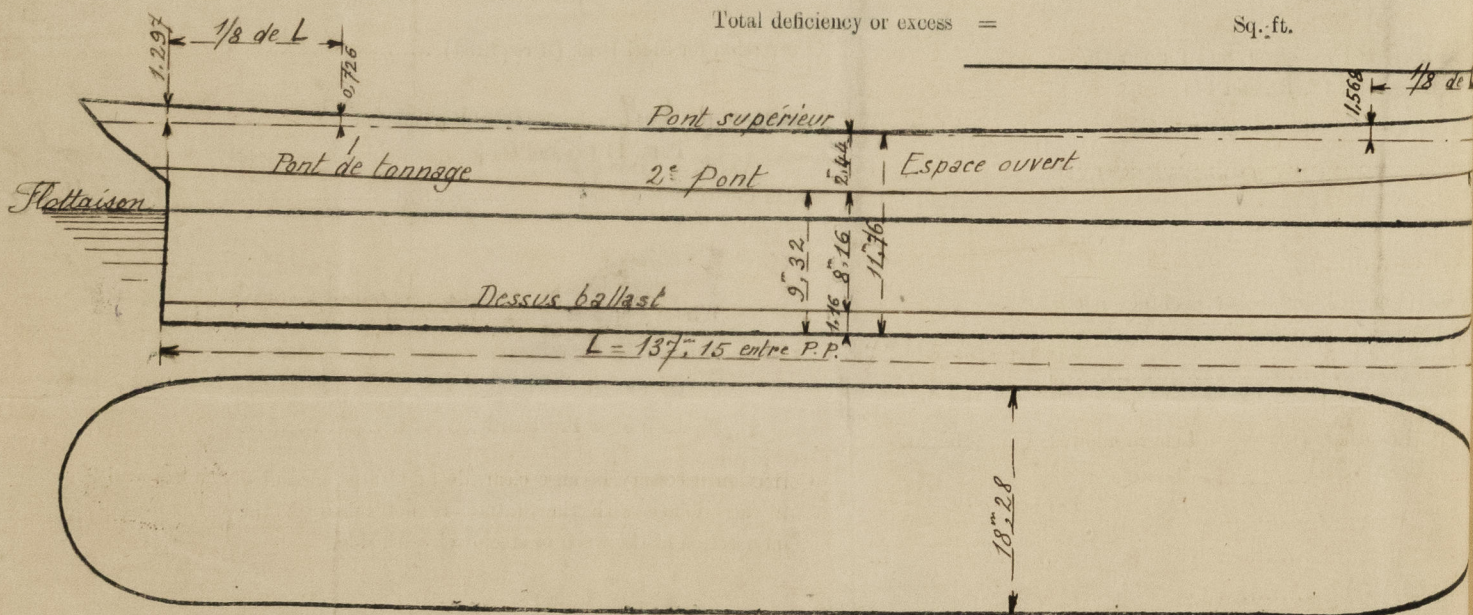 Total deficiency or excess = Sq. ft.
1.297
1/8 de L
0,726
1,568
1/8 de L
Pont supérieur
Pont de tonnage
2e Pont
2m,44
Espace ouvert
Flottaison
9m,32
8m,16
11m,76
Dessus ballast
1.16
L = 137m,15 entre P.P.
18m,28